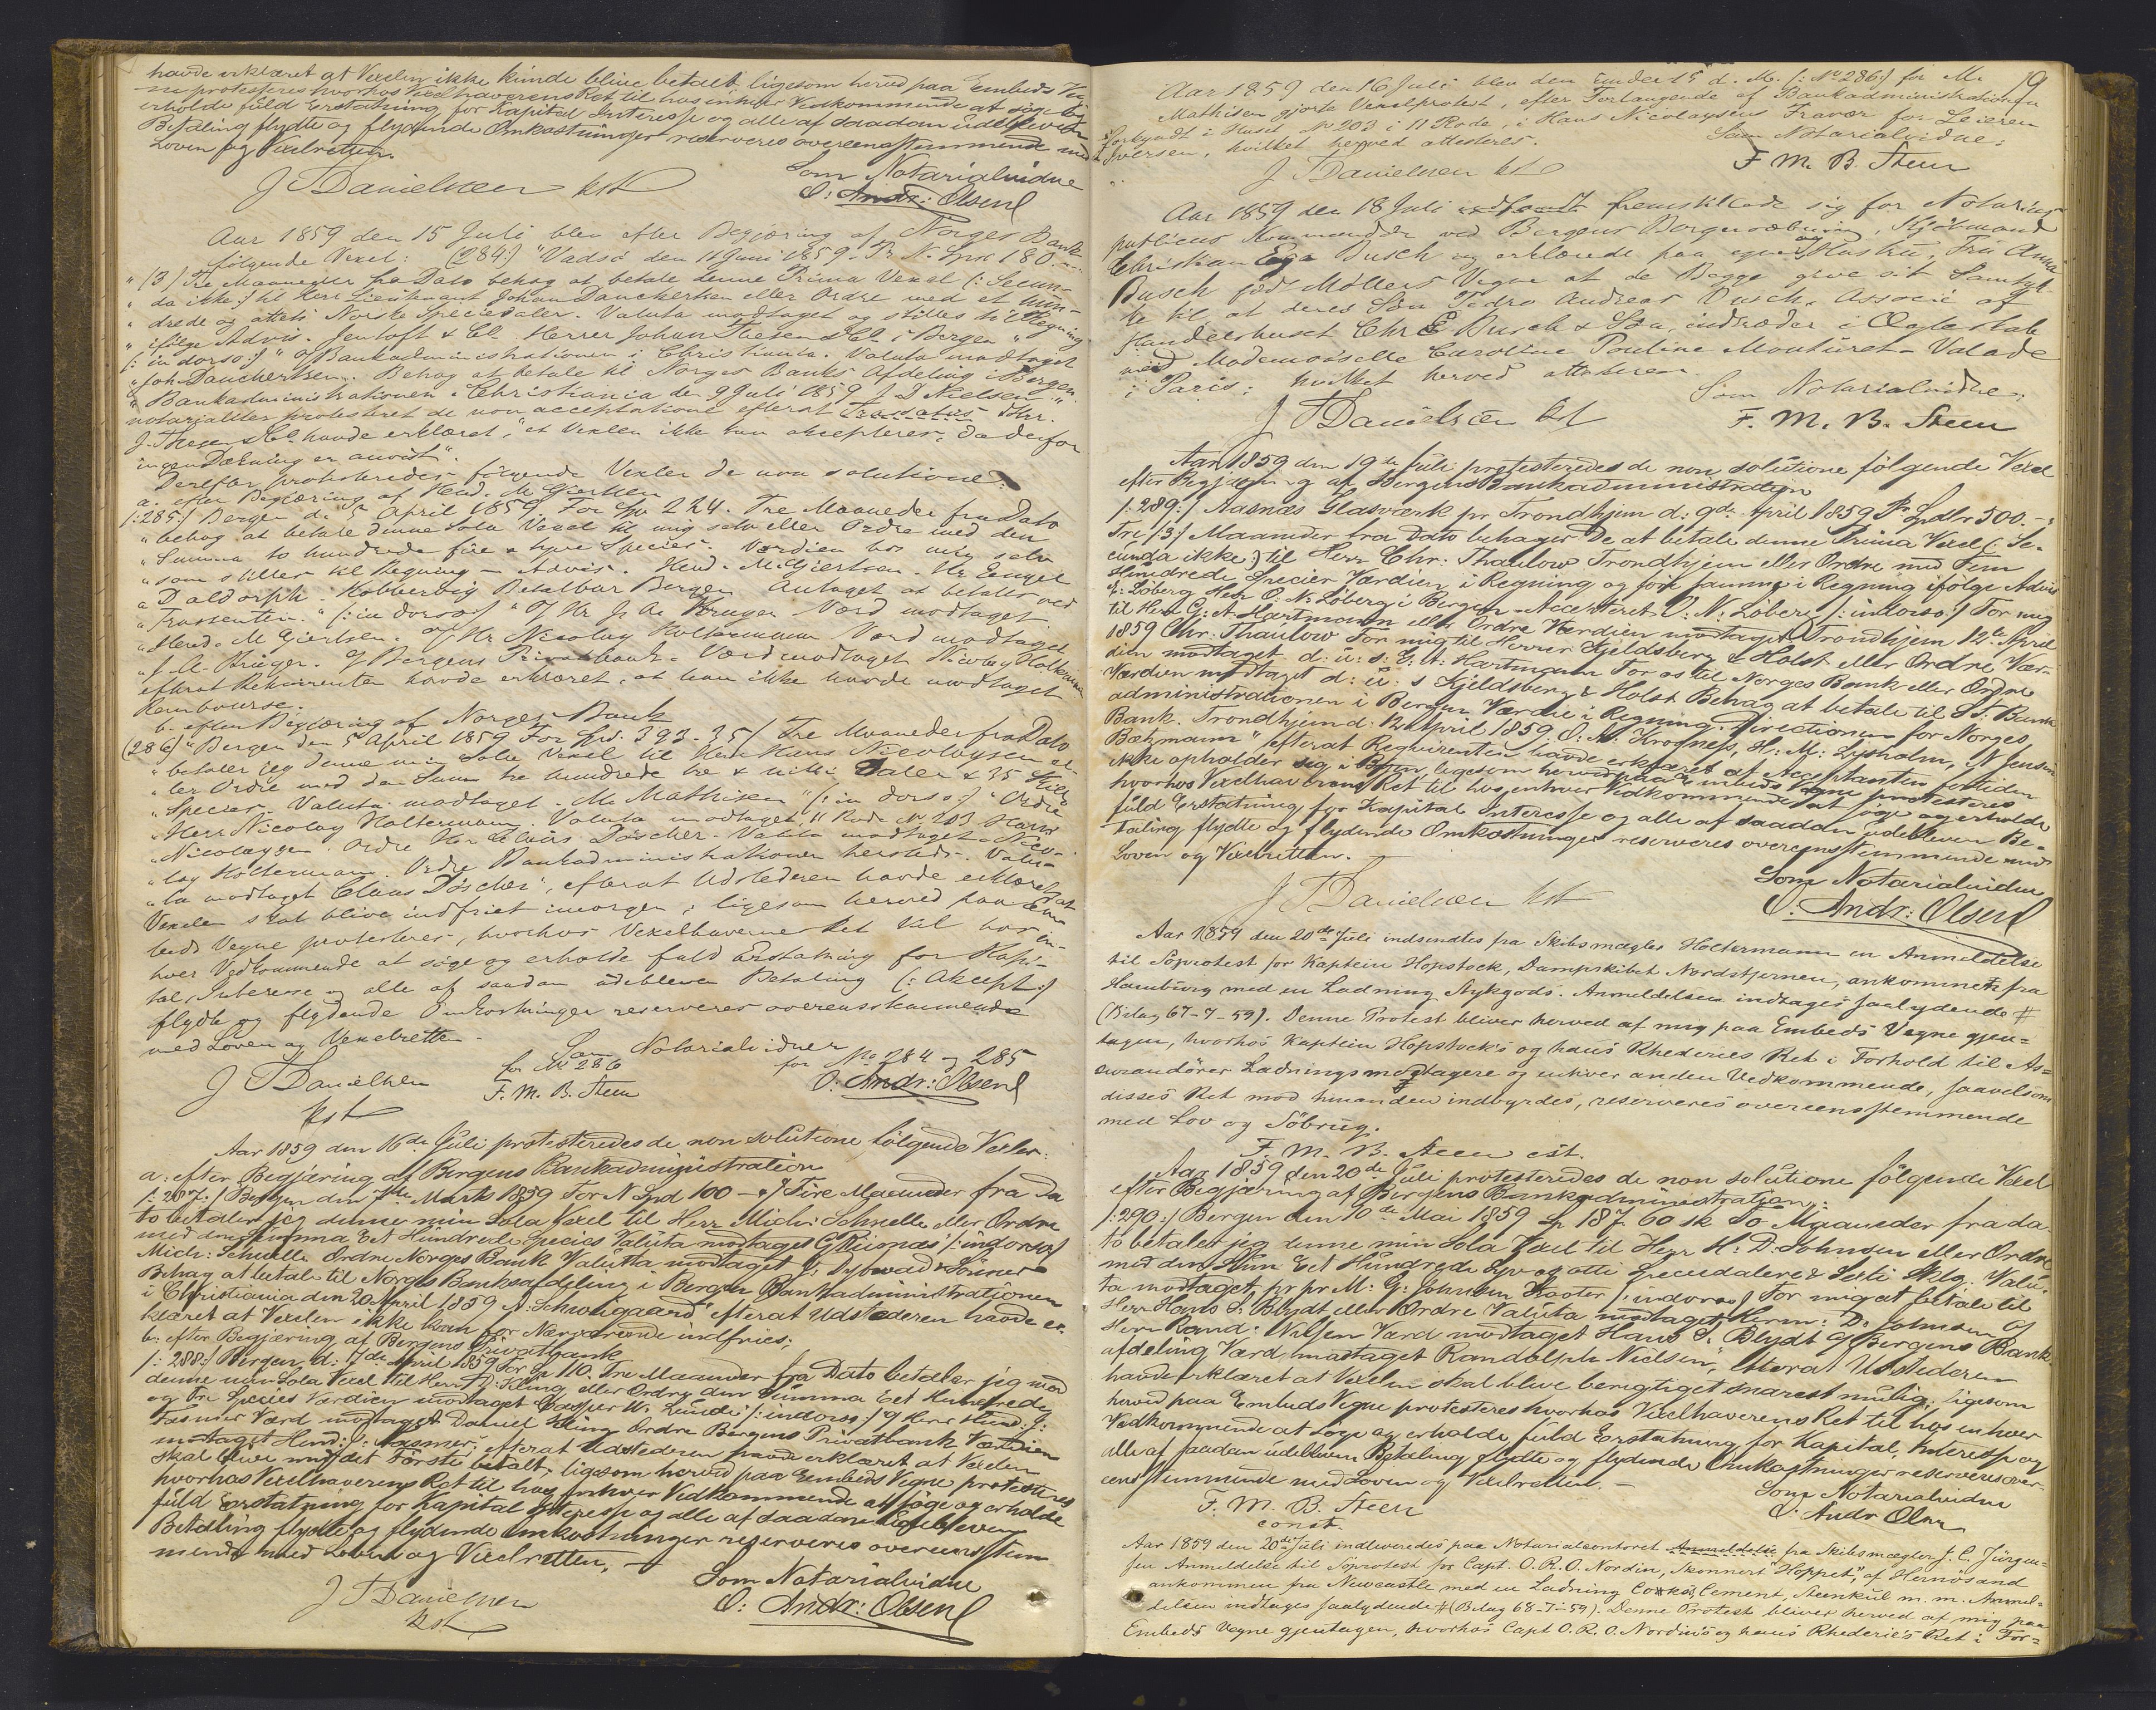 havde erklæret at Vexlen ikke kunde blive betalt ligesom herved paa Embeds Veg-
ne protesteres hvorhos Vexelhaverens Ret til hos enhver Vedkommende at söge og
erholde fuld Erstatning for Kapital Interesse og alle af saadan udebleven
Betaling flydte og flydende Omkostninger reserveres overeensstemmende med
Loven og Vexelretten.
Som Notarialvidne
J Danielsen kst
O: Andr: Olsen
Aar 1859 den 15 Juli blev efter Begjæring af Norges Bank
følgende Vexel: (284:) "Vadsö den 11 Juni 1859. Pr N. Spd 180
" (3) Tre Maaneder fra Dato behag at betale denne Prima Vexel (: Secun-
" da ikke:) til Herr Lieutnant Johan Danchertsen eller Ordre med et hun-
" drede og otteti Norske Speciedaler. Valuta modtaget og stilles til Regning
" ifölge Advis. Jentoft & Co. Herrer Johan Thesen & Co. i Bergen "
(: in dorso:) " O/ Bankadministrationen i Christiania. Valuta modtaget
" Joh. Danchertsen. Behag at betale til Norges Banks Afdeling i Bergen.
" Bankadministrationen i Christiania den 9 Juli 1859 J. D Nielsen "
notarialiter protesteret de non acceptatione efterat Trassatus Hr.
J. Thesen & Co havde erklæret, "at Vexlen ikke kan akcepteres, da derfor
ingen Dækning er anvist".
Derefter protesteredes følgende Vexler de non solutione
a. efter Begjæring af Hend. M Gjertsen
(:285:) Bergen d. 5 April 1859. For Spd 224. Tre Maaneder fra Dato
" behag at betale denne Sola Vexel til mig selv eller Ordre med den
" Summa to hundrede fire & tyve Species. Værdien hos mig selv
" som stilles til Regning – Advis. Hend. M. Gjertsen. Hr Enget
" Daldorph. Kobbervig Betalbar Bergen Antaget at betales ved
" Trassenten. " (:in dorso:) " O/ Hr J. A. Krüger Værd modtaget
" Hend. M Gjertsen. O/ Hr Nicolay Holtermann Værd modtaget
" J. A. Krüger. O/ Bergens Privatbank. Værd modtaget Nicolay Holtermann
efterat Rekvirenten havde erklæret, at han ikke havde modtaget
Rembourse.
b. efter Begjæring af Norges Bank
(286) " Bergen den 5 April 1859 For Spd. 393. 35/ Tre Maaneder fra Dato
" betaler jeg denne min Sola Vexel til Herr Hans Nicolaysen el-
" ler Ordre med den Sum tre hundrede tre & nitti Daler & 35 Skill
" Species. Valuta modtaget. M. Mathisen " (: in dorso:) " Ordre
" Herr Nicolay Holtermann. Valuta modtaget, 11 Rode No 203 Hans
" Nicolaysen. Ordre Herr Claus Döscher. Valuta modtaget Nico-
" lay Holtermann. Ordre Bankadministrationen hersteds. Valu-
" ta modtaget Claus Döscher", efterat Udstederen havde erklæret at
Vexelen skal blive indfriet imorgen; ligesom herved paa Em-
beds Vegne protesteres, hvorhos Vexelhaverens Ret til hos en-
hver Vedkommende at söge og erholde fuld Erstatning for Kapi-
tal, Interesse og alle af saadan udebleven Betaling (: Akcept:)
flydte og flydende Omkostninger reserveres overensstemmende
med Loven og Vexelretten.
Som Notarialvidner
for No 286
for No 284 og 285
J Danielsen
kst
F. M. B. Steen
O: Andr: Olsen
Aar 1859 den 16de Juli protesteredes de non solutione fölgende Vexler:
a: efter Begjæring af Bergens Bankadministration
/:287:/ Bergen den 7de Marts 1859 For N Spd 100 – Fire Maaneder fra Da
to betaler jeg denne min Sola Vexel til Herr Mich: Schnelle eller Ordre
med den Summa Eet Hundrede Species Valuta modtaget G Riisnæs /: indorso/
Mich: Schnelle Ordre Norges Bank Valutta modtaget J: Dybwad & Sönner
Behag at betale til Norges Banksafdeling i Bergen Bankadministrationen
i Christiania den 20 April 1859 A: Schweigaard efterat Udstederen havde er-
klæret at Vexlen ikke kan for Nærværende indfries;
b: efter Begjæring af Bergens Privatbank
/: 288:/ Bergen, d: 7de April 1859 For Sp 110. Tre Maaneder fra Dato betaler jeg mod
denne min Sola Vexel til Herr D: Kling eller Ordre den Summa Eet Hundrede
og Tre Species Værdien modtaget Casper W. Lunde /: indorso:/ O/ Herr Hend: J:
Fasmer Værd modtaget Daniel Kling Ordre Bergens Privatbank Værdien
modtaget Hend: J: Fasmer; efterat Udstederen havde erklæret at Vexlen
skal blive med det Förste betalt, ligesom herved paa Embeds Vegne protesteres
hvorhos Vexelhaverens Ret til hos enhver Vedkommende at söge og erholde
fuld Erstatning for Kapital Interesse og alle af saadan Udebleven
Betaling flydte og flydende Omkostninger reserveres overeensstem-
mende med Loven og Vexelretten, –
Som Notarialvidne
J Danielsen
kst
O: Andr: Olsen
19
Aar 1859 den 16 Juli blev den under 15 d. M. (: No 286:) for M.
Mathisen gjorte Vexelprotest, efter Forlangende af Bankadministrationen
forkyndt i Huset No 203 i 11 Rode, i Hans Nicolaysens Fravær for Leieren
Iversen, hvilket herved attesteres.
Som Notarialvidne:
J Danielsen kst
F. M. B. Steen
Aar 1859 den 18 Juli fremstillede sig for Notarius
publicus Kommandör ved Bergens Borgervæbning, Kjöbmand
Christian Ege Busch og erklærede paa egne og Hustru, Fru Anna
Busch föd Möllers Vegne at de Begge give sit Samtyk-
ke til at deres Sön Pedro Andreas Busch, Associé af
Handelshuset Chr E Busch & Sön, indtræder i Ægteskab
med Mademoiselle Caroline Pauline Monturet-Valade
i Paris; hvilket herved attesteres.
Som Notarialvidne:
J Danielsen kst
F. M. B. Steen
Aar 1859 den 19de Juli protesteredes de non solutione fölgende Vexel
efter Begjæring af Bergens Bankadministration
/: 289:/ Aasnæs Glasværk pr Trondhjem d: 9de April 1859 Pr Spdlr 500. –
Tre /3/ Maaneder fra Dato behager De at betale denne Prima Vexel (: Se-
cunda ikke:) til Herr Chr: Thaulow Trondhjem eller Ordre med Fem
Hundrede Species Værdien i Regning ogför samme i Regning ifölge Advis
J: Loberg Herr O: N: Loberg i Bergen – Accepteret O: N: Loberg /: indorso:/ For mig
til Herr G: A Hartmann eller Ordre Værdien modtaget Trondhjem 12te April
1859 Chr: Thaulow For mig til Herrer Kjeldsberg & Holst eller Ordre, Vær-
dien modtaget d: u: s: G. A: Hartmann For os til Norges Bank eller Ordre
Værdien modtaget d: u: s Kjeldsberg & Holst Behag at betale til St: Bank
administrationen i Bergen Værdie i Regning. Directionen for Norges
Bank. Trondhjem d: 12 April 1859 O: A: Krogness, H: M: Lysholm, N Jensen
Bætzmann" efterat Reqvirenten havde erklæret at Acceptanten for tiden
ikke opholder sig i Byen, ligesom herved paa Embeds Vegne protesteres
hvorhos Vexelhaverens Ret til hos enhver Vedkommende at söge og erholde
fuld Erstatning for Kapital Interesse og alle af saadan udebleven Be-
taling flydte og flydende Omkostninger reserveres overeensstemmende med
Loven og Vexelretten. –
Som Notarialvidne
J Danielsen kst
O: Andr: Olsen
Aar 1859 den 20de Juli indsendtes fra Skibsmægler Holtermann en Anmeldelse
til Söprotest for Kaptein Hopstock, Dampskibet Nordstjernen, ankommet fra
Hamburg med en Ladning Stykgods. Anmeldelsen indtages saalydende #
(Bilag 67-7-59). Denne Protest bliver herved af mig paa Embeds Vegne gjen-
tagen, hvorhos Kaptein Hopstock's og hans Rhederies Ret i Forhold til As-
surandörer Ladningsmodtagere og enhver anden Vedkommende, saavelsom
disses Ret mod hinanden indbyrdes, reserveres overeensstemmende
med Lov og Söbrug.
F. M. B. Steen cst.
Aar 1859 den 20de Juli protesteredes de non solutione fölgende Vexel
efter Begjæring af Bergens Bankadministration:
/: 290:/ Bergen den 10de Mai 1859 Sp 187. 60 sk To Maaneder fra da-
to betaler jeg denne min Sola Vexel til Herr H: D: Johnsen eller Ordre
med den Sum Eet Hundrede Syv og otti Speciedalere & Sexti Sklg. Valu-
ta modtaget pr pr M: G: Johnsen Kooter /: indorso/ For mig at betale til
Herr Hans S: Blydt eller Ordre Valuta modtaget Herm: D: Johnsen O/
Herr Rand: Nilsen Værd modtaget Hans S: Blydt O/ Bergens Bank
afdeling Værd modtaget Randolph Nielsen", efterat Udstederen
havde erklæret at Vexlen skal blive berigtiget snarest mulig; ligesom
herved paa Embeds Vegne protesteres hvorhos Vexelhaverens Ret til hos enhver
Vedkommende at söge og erholde fuld Erstatning for Kapital, Interesse og
alle af saadan udebleven Betaling flydte og flydende Omkostninger reserveres over-
eensstemmende med Loven og Vexelretten. –
Som Notarialvidne
F. M. B. Steen
const.
O: Andr Olsen
Aar 1859 den 20de Juli indleveredes paa Notarialcontoret Anmeldelse fra Skibsmægler J. C. Jürgen-
sen Anmeldelse til Söprotest for Capt. O. R. O. Nordin, Skonnert "Hoppet", af Hernösand
ankommen fra Newcastle med en Ladning Cokes Cement, Steenkul m. m. Anmel-
delsen indtages saalydende # (Bilag 68-7-59). Denne Protest bliver herved af mig paa
Embeds Vegne gjentagen, hvorhos Capt O. R. O. Nordin's og hans Rhederie's Ret i For-